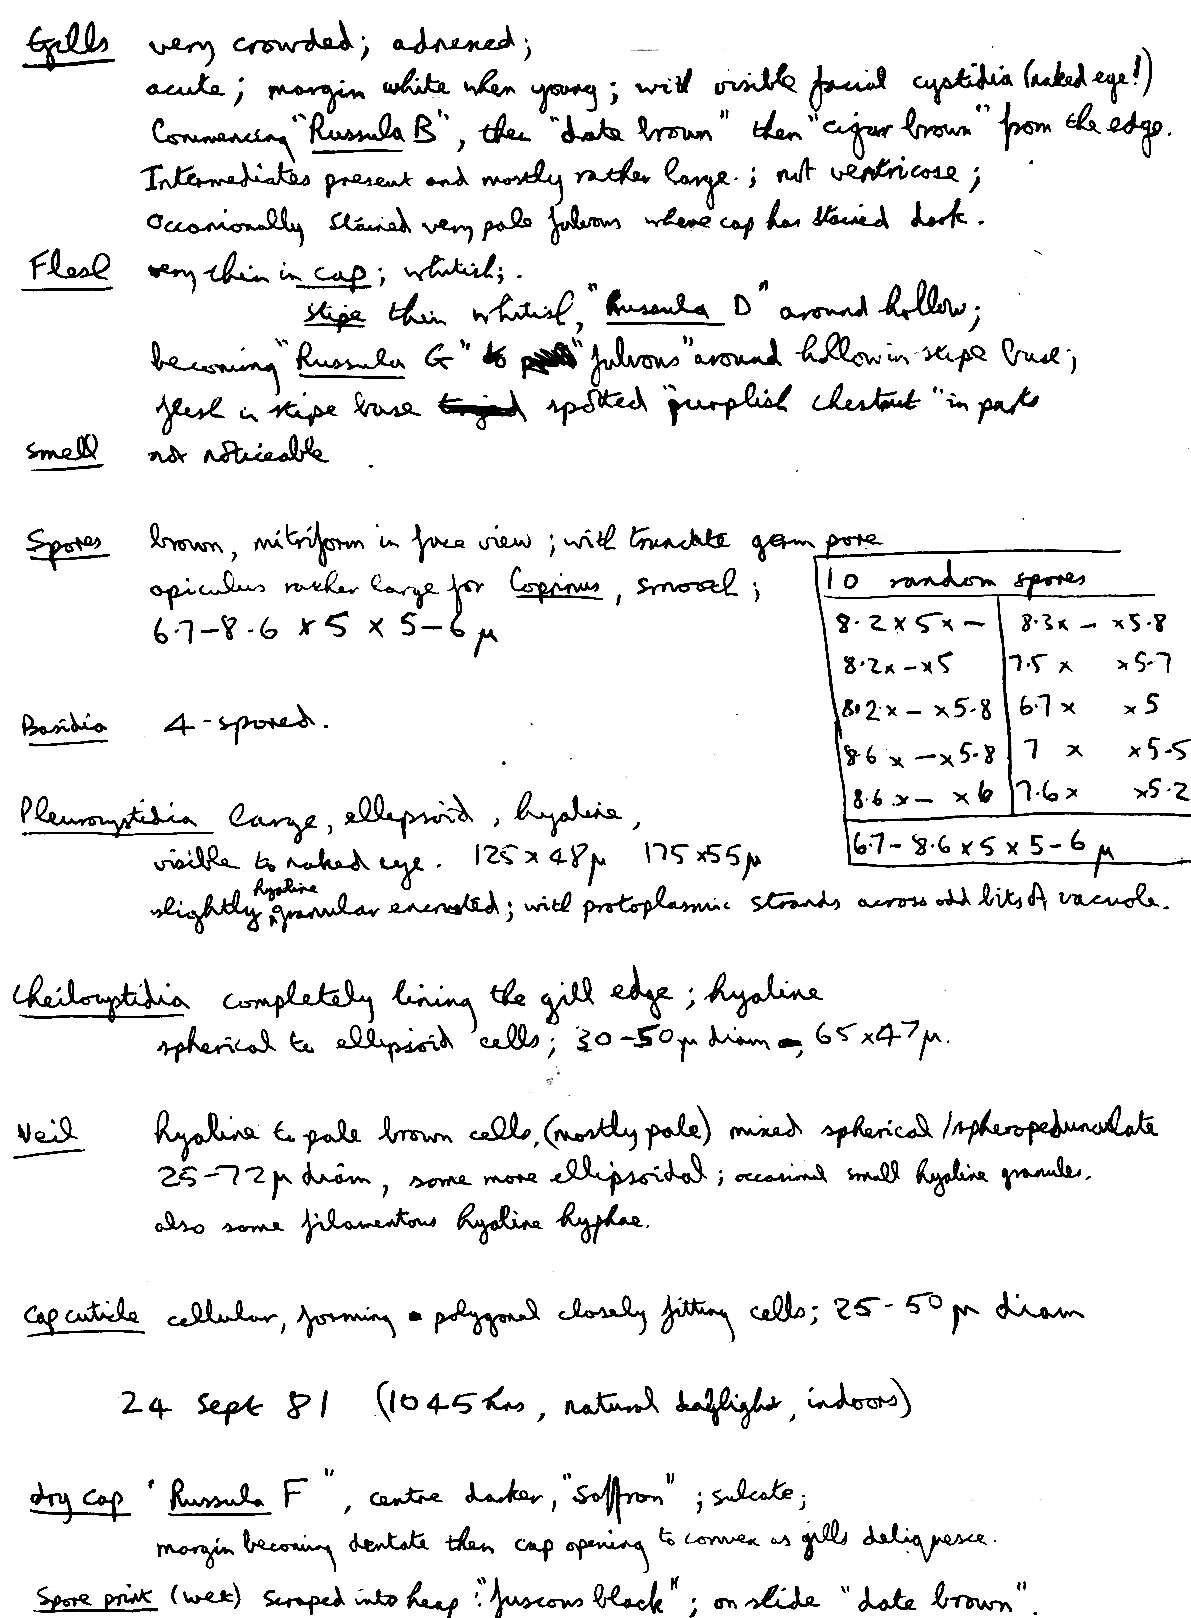 Gills very crowded; adnexed;
acute; margin white when young; with visible facial cystidia (naked eye!)
Commencing "Russula B", then "date brown" then "cigar brown" from the edge.
Intermediates present and mostly rather large.; not ventricose;
Occasionally stained very pale fulvous where cap has stained dark.
Flesh very thin in cap; whitish;.
stipe thin whitish, "Russula D" around hollow;
becoming "Russula G" to "fulvous" around hollow in stipe base;
flesh in stipe base spotted "purplish chestnut" in parts
Smell not noticeable.
Spores brown, mitriform in face view; with truncate germ pore
apiculus rather large for Coprinus, smooth;
6.7-8.6 x 5 x 5-6 µ
10 random spores
8.2 x 5 x - 8.3 x - x 5.8
8.2 x - x 5 7.5 x x 5.7
8.2 x - x 5.8 6.7 x x 5
8.6 x - x 5.8 7 x x 5.5
8.6 x - x 6 7.6 x x 5.2
6.7-8.6 x 5 x 5-6 µ
Basidia 4-spored.
Pleurocystidia large, ellipsoid, hyaline,
visible to naked eye. 125 x 48µ 175 x 55µ
slightly hyaline granular encrusted; with protoplasmic strands across odd bits of vacuole.
Cheilocystidia completely lining the gill edge; hyaline
spherical to ellipsoid cells; 30-50µ diam, 65 x 47µ.
Veil hyaline to pale brown cells, (mostly pale) mixed spherical/spheropedunculate
25-72µ diam, some more ellipsoidal; occasional small hyaline granules.
also some filamentous hyaline hyphae.
Cap cuticle cellular, forming polygonal closely fitting cells; 25-50µ diam
24 Sept 81 (1045 hrs, natural daylight, indoors)
dry cap "Russula F", centre darker, "saffron"; sulcate;
margin becoming dentate then cap opening to convex as gills deliquesce.
Spore print (wet) scraped into heap: "fuscous black"; on slide "date brown".